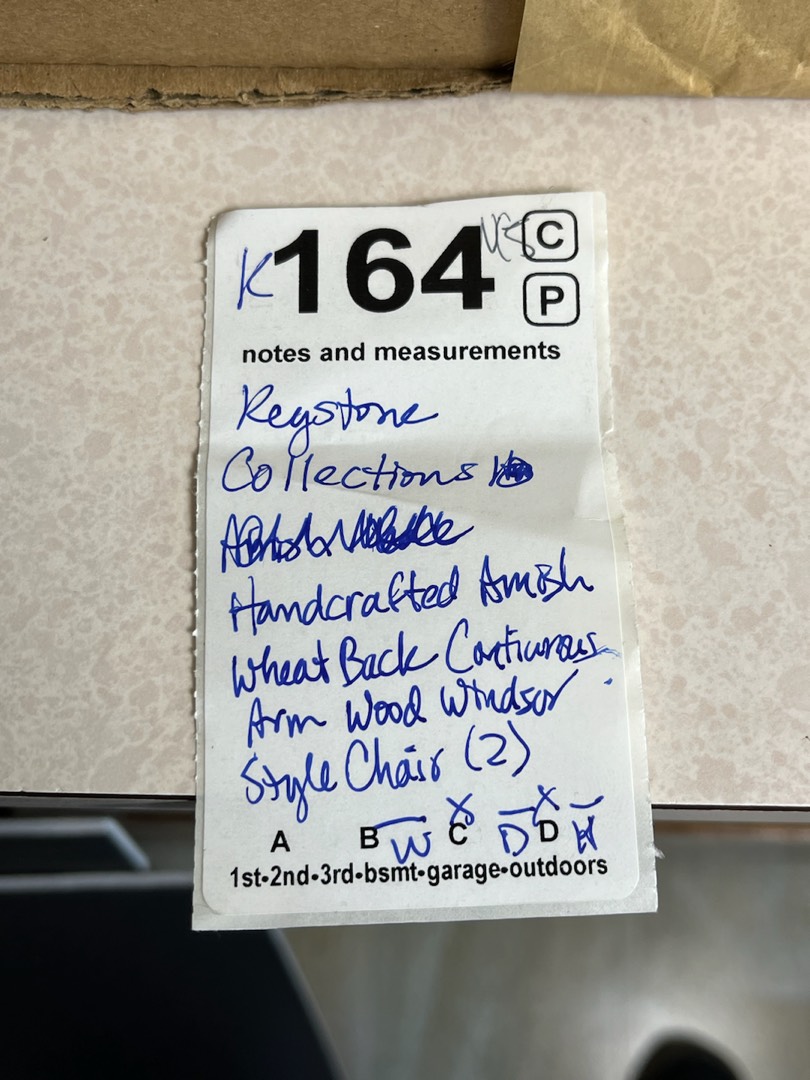 K164 C
P
notes and measurements
Keystone
Collections
Handcrafted Amish
Wheat Back Continuous
Arm Wood Windsor
Style Chair (2)
A B W X C D X D H
1st•2nd•3rd•bsmt•garage•outdoors